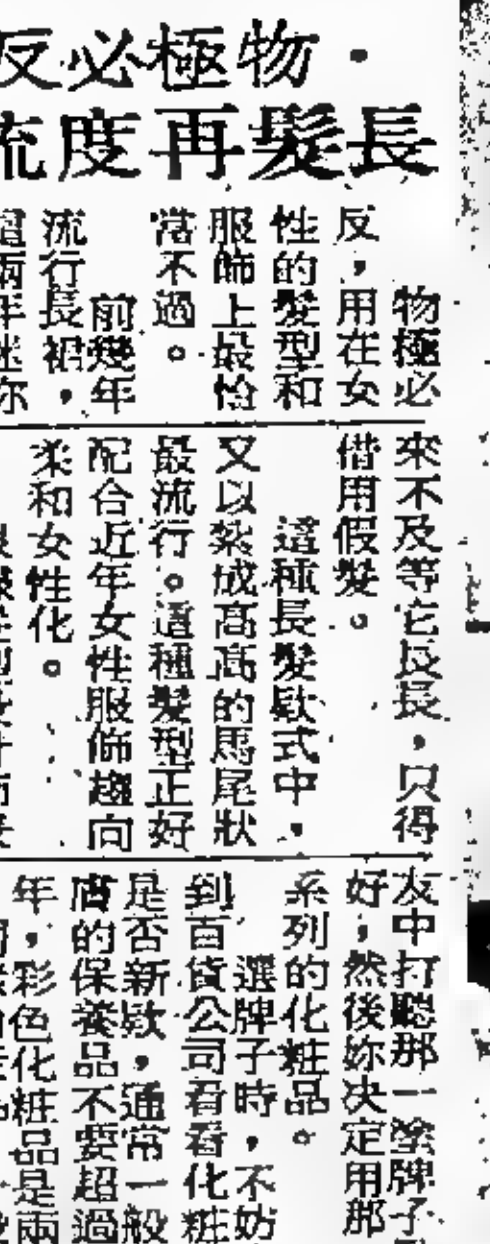 ・物極必反
長髮再度流
物極必
反，用在女
性的髮型和
服飾上最恰
當不過。
前幾年
流行長裙，
這兩年迷你
來不及等它長長，只得
借用假髮。
這種長髮款式中，
又以紮成高高的馬尾狀
最流行。這種髮型正好
配合近年女性服飾趨向
柔和女性化。
友中打聽那一塗牌子
好，然後妳決定用那
系列的化粧品。
選牌子時，不妨
到百貨公司看看化粧
是否新款，通常一般
膚的保養品不要超過
年，彩色化粧品是兩